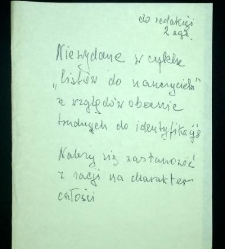 do redakcji
2 egz.
Nie wydane w cyklu
"listów do nauczycieli"
z względów obecnie
trudnych do identyfikacji
Należy się zastanowić
z racji na charakter
całości